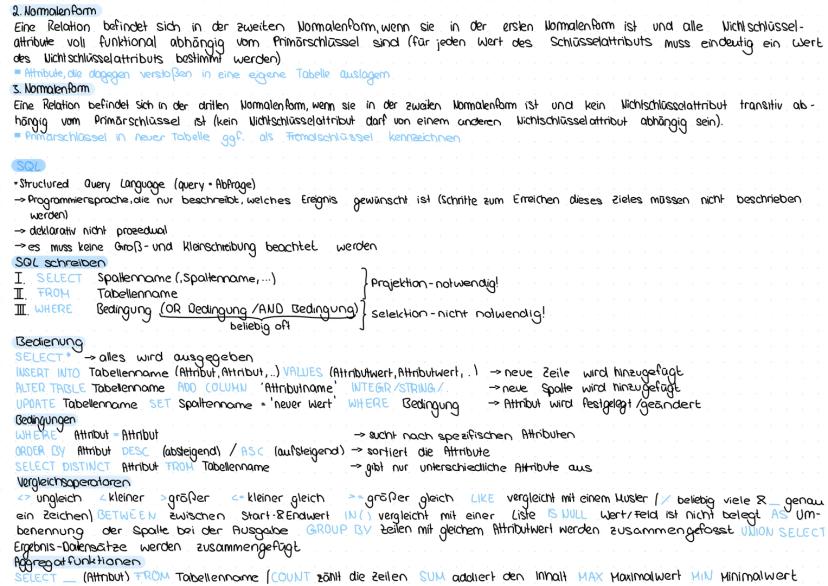 2. Normalenform
Eine Relation befindet sich in der zweiten Normalenform, wenn sie in der ersten Normalenform ist und alle Nichtschlüssel-
attribute voll funktional abhängig vom Primärschlüssel sind (für jeden Wert des Schlüsselattributs muss eindeutig ein Wert
des Nichtschlüsselattributs bestimmt werden)
* Attribute, die dagegen verstoßen in eine eigene Tabelle auslagern
3. Normalenform
Eine Relation befindet sich in der dritten Normalenform, wenn sie in der zweiten Normalenform ist und kein Nichtschlüsselattribut transitiv ab-
hängig vom Primärschlüssel ist (kein Nichtschlüsselattribut darf von einem anderen Nichtschlüsselattribut abhängig sein).
* Primärschlüssel in neuer Tabelle ggf. als Fremdschlüssel kennzeichnen
SQL
• Structured Query Language (query = Abfrage)
→ Programmiersprache, die nur beschreibt, welches Ereignis gewünscht ist (Schritte zum Erreichen dieses Zieles müssen nicht beschrieben
werden)
→ deklarativ nicht prozedual
→ es muss keine Groß- und Kleinschreibung beachtet werden
SQL schreiben
I. SELECT Spaltenname (,Spaltenname,...)
II. FROM Tabellenname } Projektion - notwendig!
III. WHERE Bedingung (OR Bedingung /AND Bedingung) } Selektion - nicht notwendig!
beliebig oft
Bedienung
SELECT * → alles wird ausgegeben
INSERT INTO Tabellenname (Attribut, Attribut,..) VALUES (Attributwert, Attributwert,..) → neue Zeile wird hinzugefügt
ALTER TABLE Tabellenname ADD COLUMN 'Attributname' INTEGR/STRING/.. → neue Spalte wird hinzugefügt
UPDATE Tabellenname SET Spaltenname = 'neuer Wert' WHERE Bedingung → Attribut wird festgelegt/geändert
Bedingungen
WHERE Attribut = Attribut → sucht nach spezifischen Attributen
ORDER BY Attribut DESC (absteigend) / ASC (aufsteigend) → sortiert die Attribute
SELECT DISTINCT Attribut FROM Tabellenname → gibt nur unterschiedliche Attribute aus
Vergleichsoperatoren
<> ungleich < kleiner > größer <= kleiner gleich >= größer gleich LIKE vergleicht mit einem Muster (% beliebig viele & _ genau
ein Zeichen) BETWEEN zwischen Start- & Endwert IN() vergleicht mit einer Liste IS NULL Wert/Feld ist nicht belegt AS Um-
benennung der Spalte bei der Ausgabe GROUP BY Zeilen mit gleichem Attributwert werden zusammengefasst UNION SELECT
Ergebnis-Datensätze werden zusammengefügt
Aggregatfunktionen
SELECT __ (Attribut) FROM Tabellenname (COUNT zählt die Zeilen SUM addiert den Inhalt MAX Maximalwert MIN Minimalwert